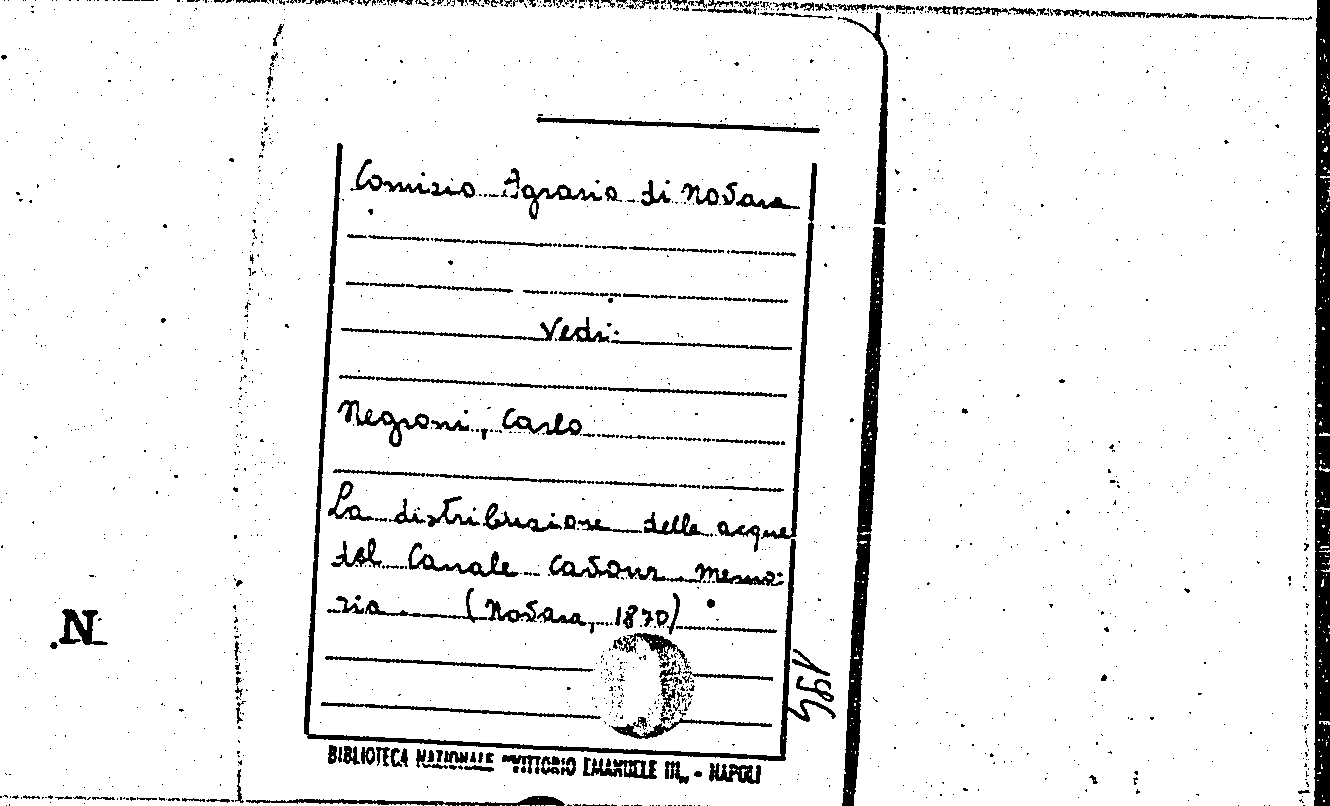 Comizio Agrario di Novara
Vedi:
Negroni, Carlo
La distribuzione delle acque
del Canale Cavour. Memo-
ria. (Novara, 1870)
N
BIBLIOTECA NAZIONALE "VITTORIO EMANUELE III„ - NAPOLI